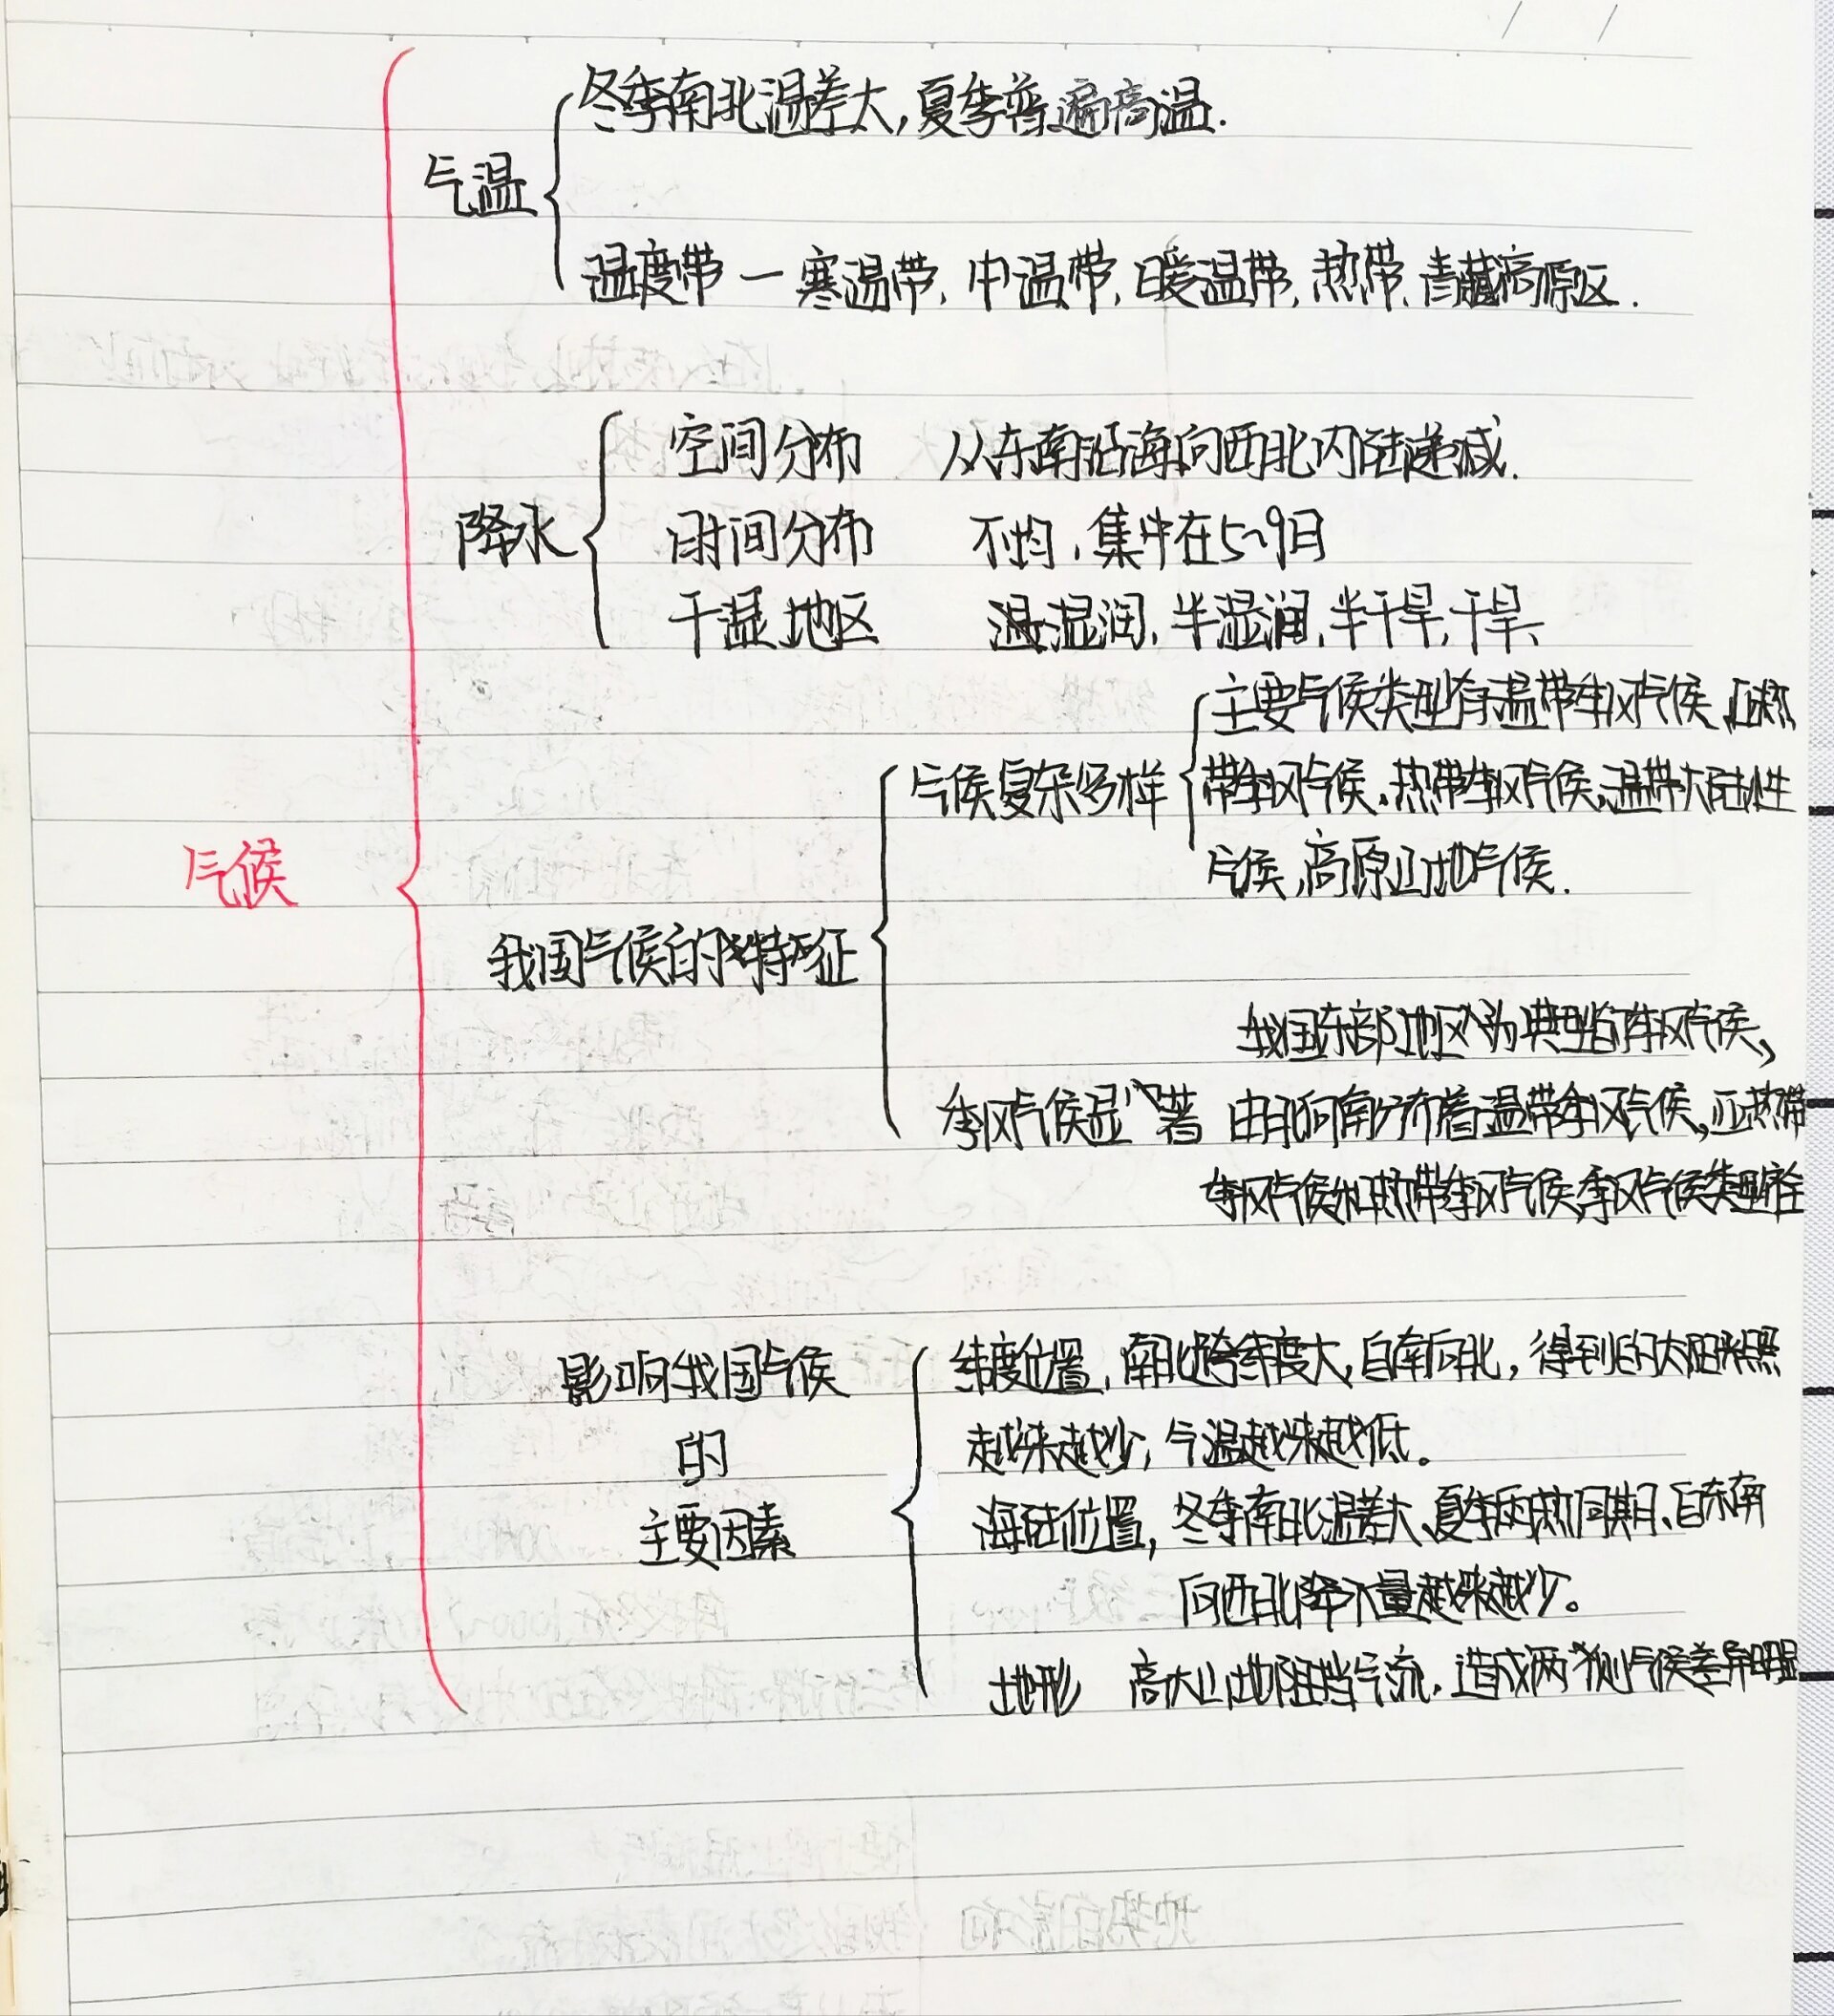 冬季南北温差大,夏季普遍高温.
气温
温度带一寒温带,中温带,暖温带,热带,青藏高原区.
空间分布 从东南沿海向西北内陆递减.
降水
时间分布 不均,集中在5~9日
干湿地区 湿润,半湿润,半干旱,干旱、
主要气候类型有温带季风气候、亚热
气候复杂多样 带季风气候、热带季风气候、温带大陆性
气候
气候、高原山地气候.
我国气候的特征
我国东部地区为典型的季风气候,
季风气候显著 由北向南分布着温带季风气候,亚热带
季风气候和热带季风气候,季风气候类型齐全
影响我国气候 纬度位置,南北跨纬度大,自南向北,得到的太阳光照
的 越来越少,气温越来越低。
主要因素 海陆位置,冬季南北温差大、夏季雨热同期、自东南
向西北降水量越来越少。
地形 高大山地阻挡气流,造成两侧气候差异明显